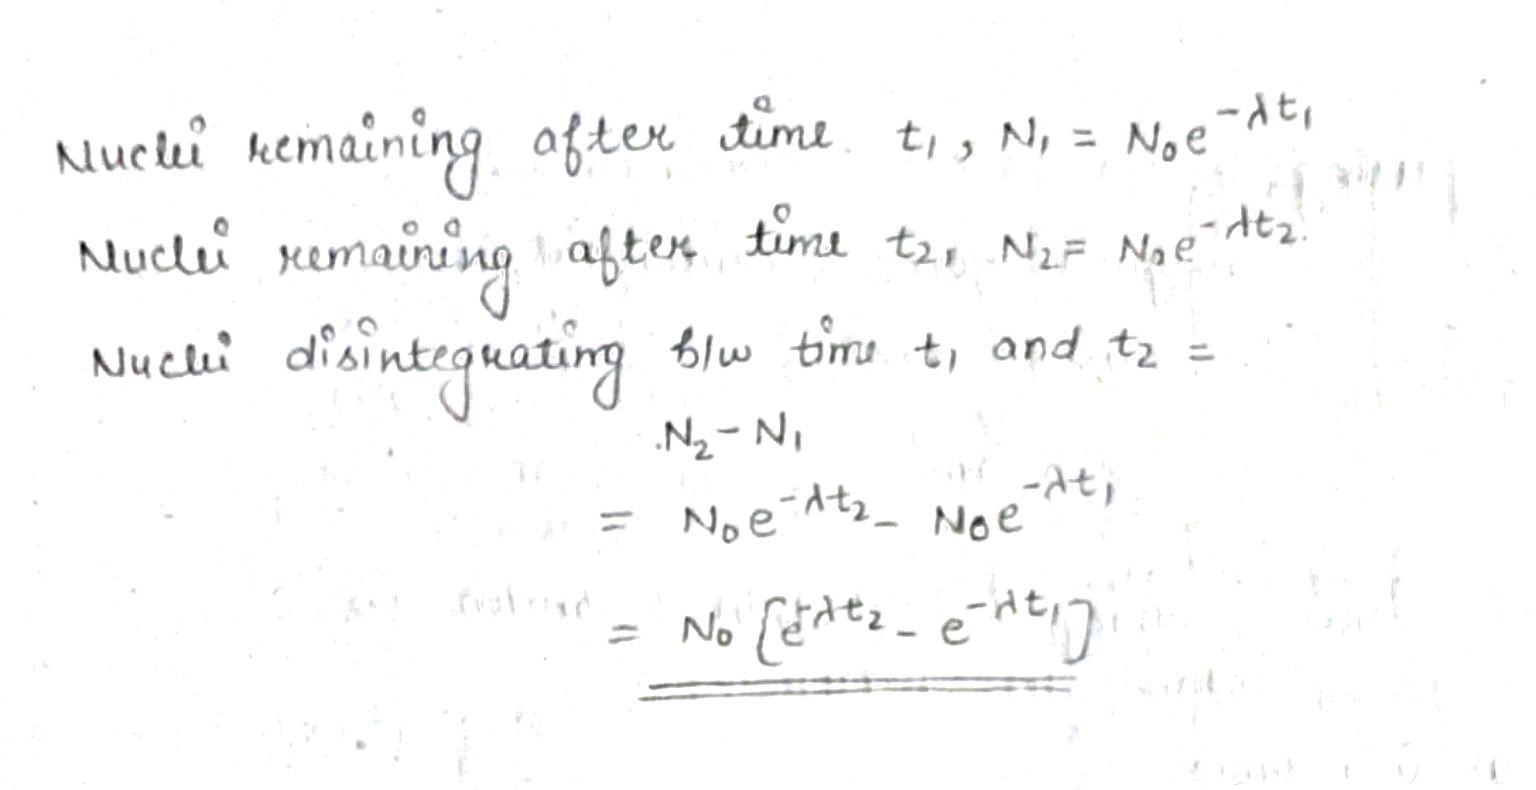 Nuclei remaining after time t₁, N₁ = N₀e^-λt₁
Nuclei remaining after time t₂, N₂ = N₀e^-λt₂.
Nuclei disintegrating b/w time t₁ and t₂ =
N₂ - N₁
= N₀e^-λt₂ - N₀e^-λt₁
= N₀ [e^-λt₂ - e^-λt₁]